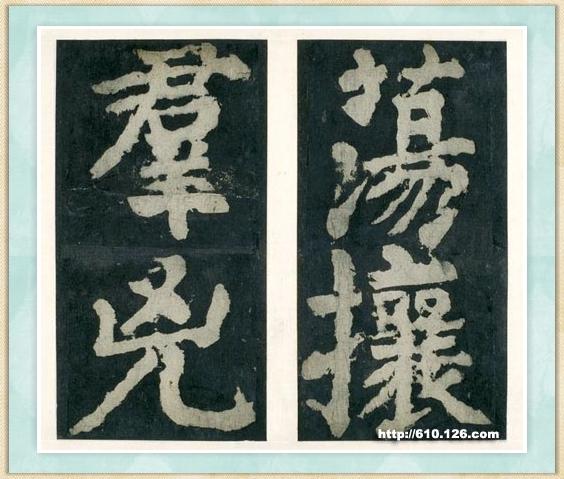 蕩攘
羣兇
http://610.126.com